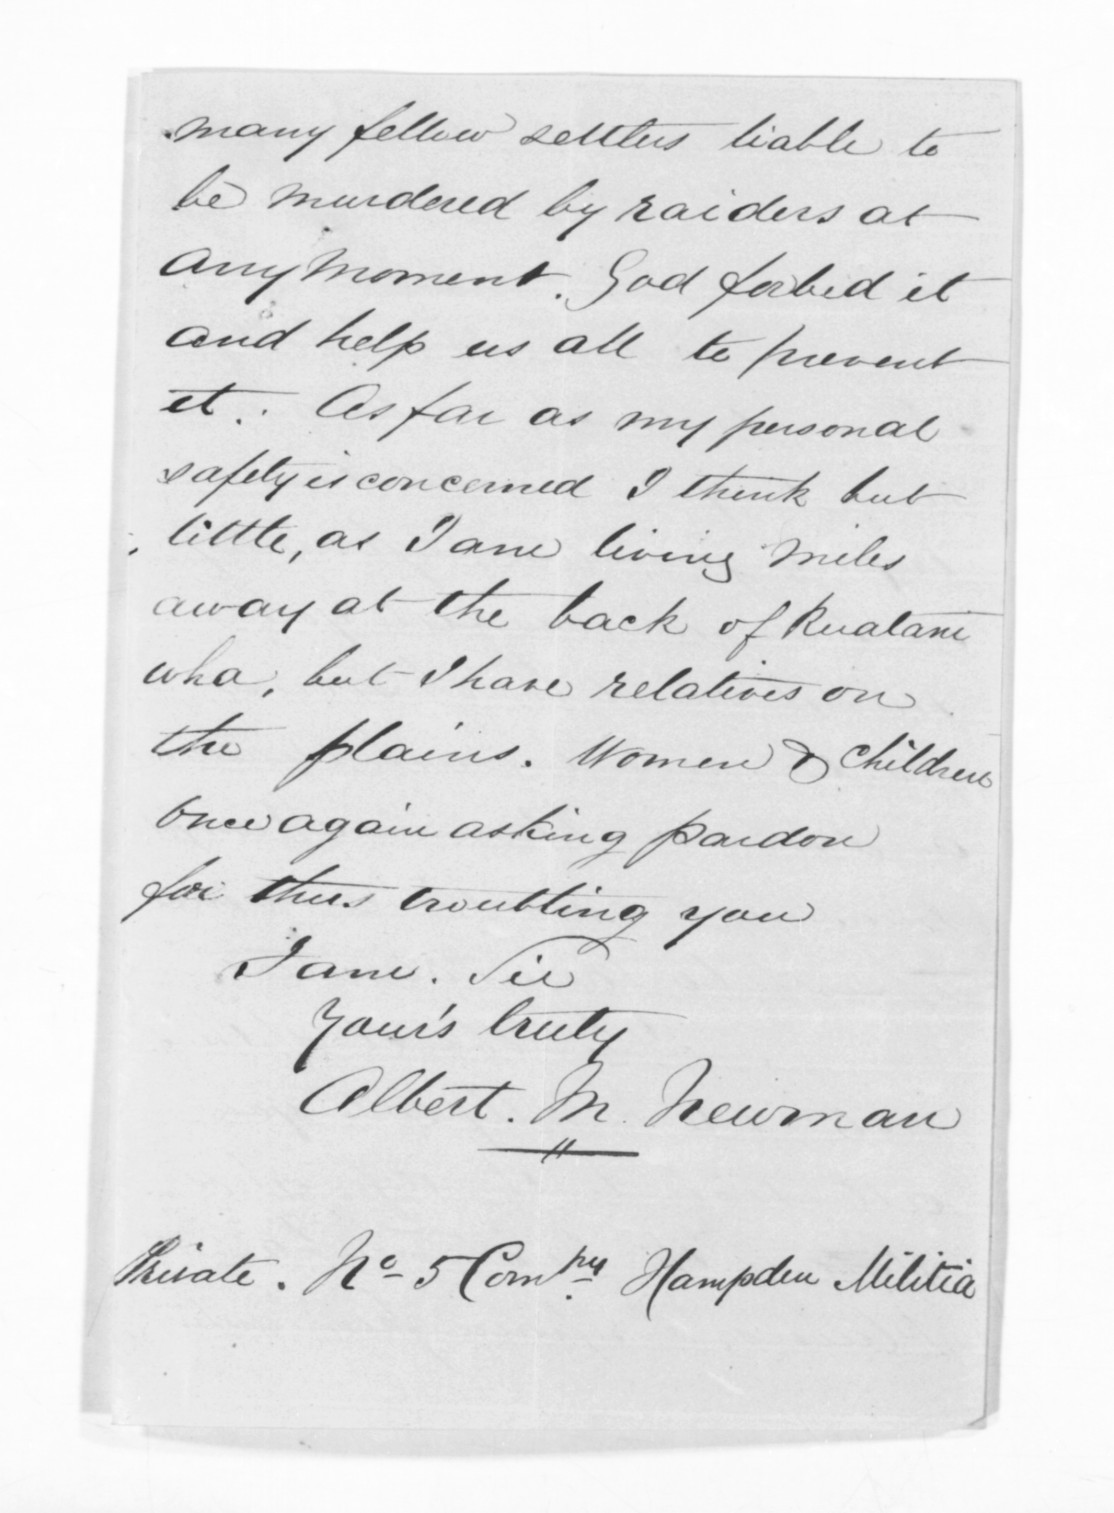 many fellow settlers liable to
be murdered by raiders at
any moment. God forbid it
and help us all to prevent
it. As far as my personal
safety is concerned I think but
little, as I am living miles
away at the back of Ruatani
wha, but I have relatives on
the plains. Women & Children
once again asking pardon
for thus troubling you
I am. Sir
Your's truly
Albert. M. Newman
Private. No 5 Compny Hampden Militia